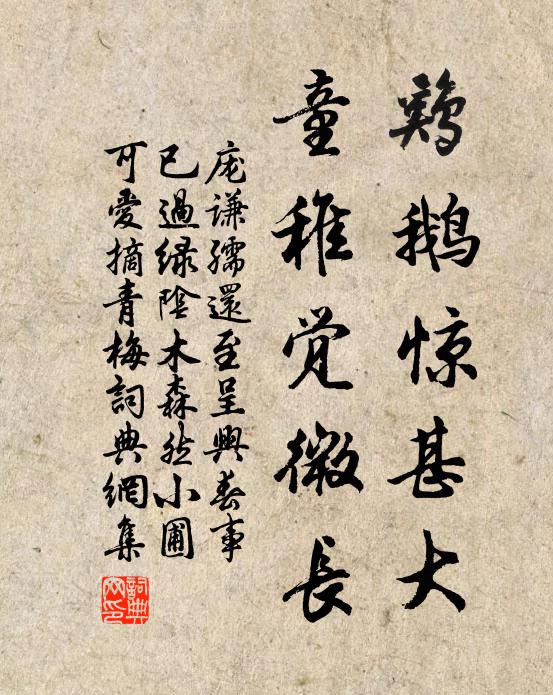 鷄鹅惊甚大
童稚觉微長
庞谦孺還至呈興春事
已過绿陰木森然小圃
可愛摘青梅詞典網集
詞典网印